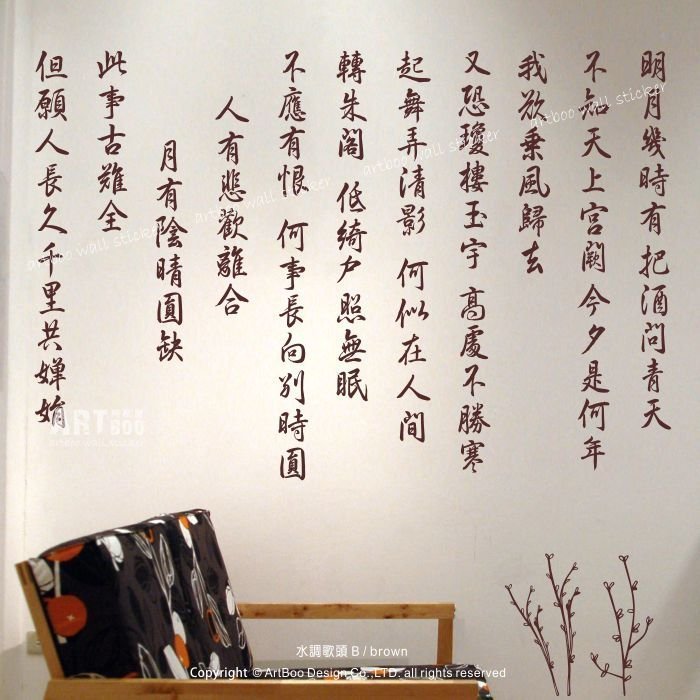 明月幾時有 把酒問青天
不知天上宮闕 今夕是何年
我欲乘風歸去
又恐瓊樓玉宇 高處不勝寒
起舞弄清影 何似在人間
轉朱閣 低綺戶 照無眠
不應有恨 何事長向別時圓
人有悲歡離合
月有陰晴圓缺
此事古難全
但願人長久 千里共嬋娟
artboo wall sticker
artboo wall sticker
artboo wall sticker
artboo wall sticker
ARTBOO
artboo wall sticker
水調歌頭 B / brown
Copyright © ArtBoo Design Co.,LTD. all rights reserved